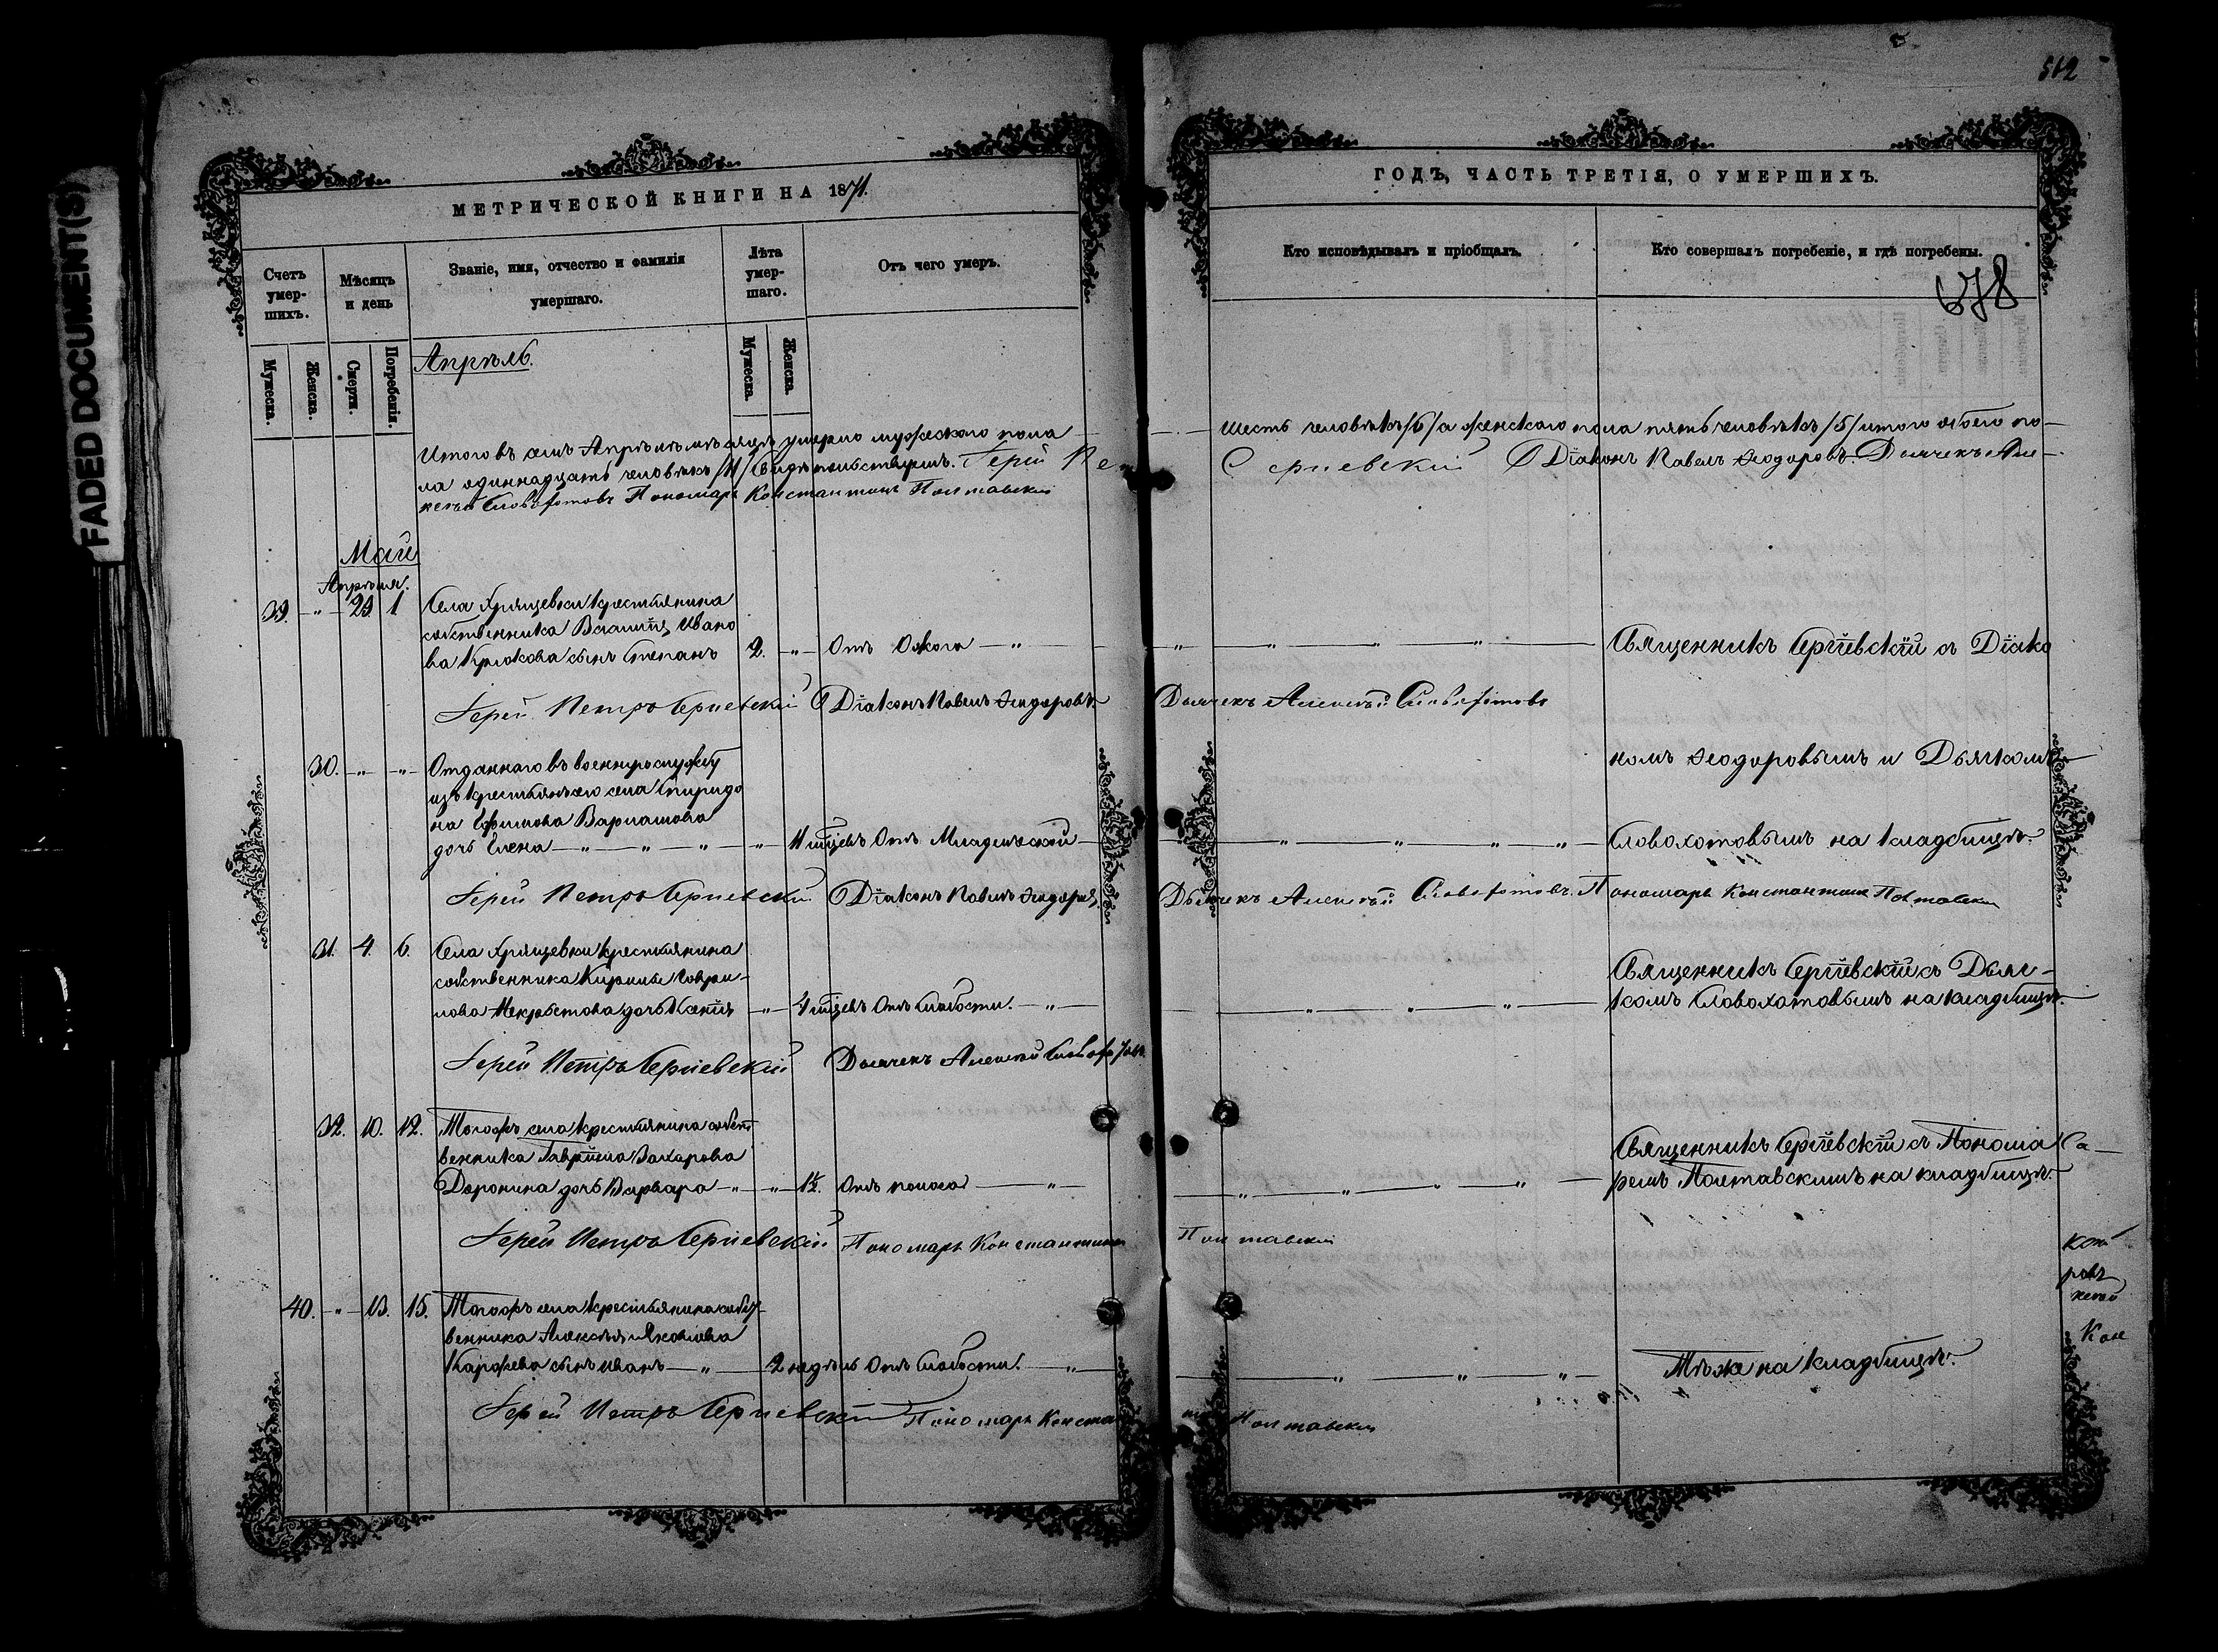 FADED DOCUMENT(S)
512
МЕТРИЧЕСКОЙ КНИГИ НА 1871.
Счетъ умер- шихъ.
Мѣсяцъ и день
Званіе, имя, отчество и фамилія умершаго.
Лѣта умер- шаго.
Отъ чего умеръ.
Мужеска.
Женска.
Смерти.
Погребенія.
Мужеска.
Женска.
Апрѣль.
Итого въ семъ Апрѣлѣ мѣсяцѣ умерло мужескаго пола
ла одиннадцать человѣкъ /11/ Свидѣтельствуемъ. Іерей Пет
ксѣй Словохотовъ Пономарь Константинъ Полтавскій
Май
Апрѣля.
39. " 29. 1 Села Хрящевки крестьянина
собственника Василія Ивано
ва Крюкова сынъ Степанъ 2. " Отъ Ожога "
Іерей Петръ Сергіевскій Діаконъ Павелъ Ѳеодоровъ
30. " " Отданнаго въ военную службу
изъ крестьянъ сего села Спиридо
на Ефимова Варлашова
дочь Елена " " " " 11 мѣсяцевъ Отъ Младенской
Іерей Петръ Сергіевскій Діаконъ Павелъ Ѳеодоровъ
31. 4. 6. Села Хрящевки крестьянина
собственника Кирилы Гаври-
лова дочь Ксенія " 4 мѣсяцевъ Отъ Слабости. "
Іерей Петръ Сергіевскій Дьячекъ Алексѣй Словохотовъ
32. 10. 12. Тогожъ села крестьянина собст
венника Гавріила Захарова
Доронина дочь Варвара " " 1½. Отъ поноса "
Іерей Петръ Сергіевскій Пономарь Константинъ
40. " 13. 15. Тогожъ села крестьянина собст
венника Алексѣя Яковлева
сынъ Иванъ " 2 недѣль Отъ Слабости. "
Іерей Петръ Сергіевскій Пономарь Конста
ГОДЪ, ЧАСТЬ ТРЕТІЯ, О УМЕРШИХЪ.
Кто исповѣдывалъ и пріобщалъ.
Кто совершалъ погребеніе, и гдѣ погребены.
678
шесть человѣкъ /6/ а женскаго пола пять человѣкъ /5/ итого обоего по-
Сергіевскій Діаконъ Павелъ Ѳеодоровъ. Дьячекъ Але-
" " " " Священникъ Сергіевскій съ Діако
Дьячекъ Алексѣй Словохотовъ
номъ Ѳеодоровымъ и Дьячкомъ
" " " " Словохотовымъ на кладбищѣ.
Дьячекъ Алексѣй Словохотовъ. Пономарь Константинъ Полтавскій
Священникъ Сергіевскій съ Дьяч-
" " " комъ Словохотовымъ на кладбищѣ.
Священникъ Сергіевскій съ Понома
" " " " ремъ Полтавскимъ на кладбищѣ.
Полтавскій
" " " Тѣже на кладбищѣ.
Полтавскій